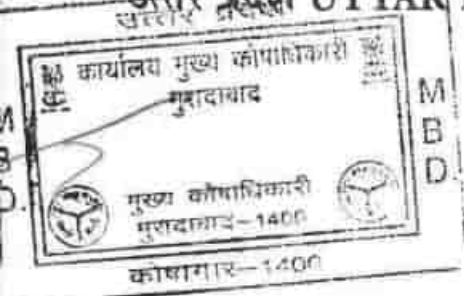 उत्तर प्रदेश UTTAR
उत्तर प्रदेश
कार्यालय मुख्य कोषाधिकारी
मुरादाबाद
M
B
D
M
B
D.
मुख्य कोषाधिकारी
मुरादाबाद-1400
कोषागार-1400